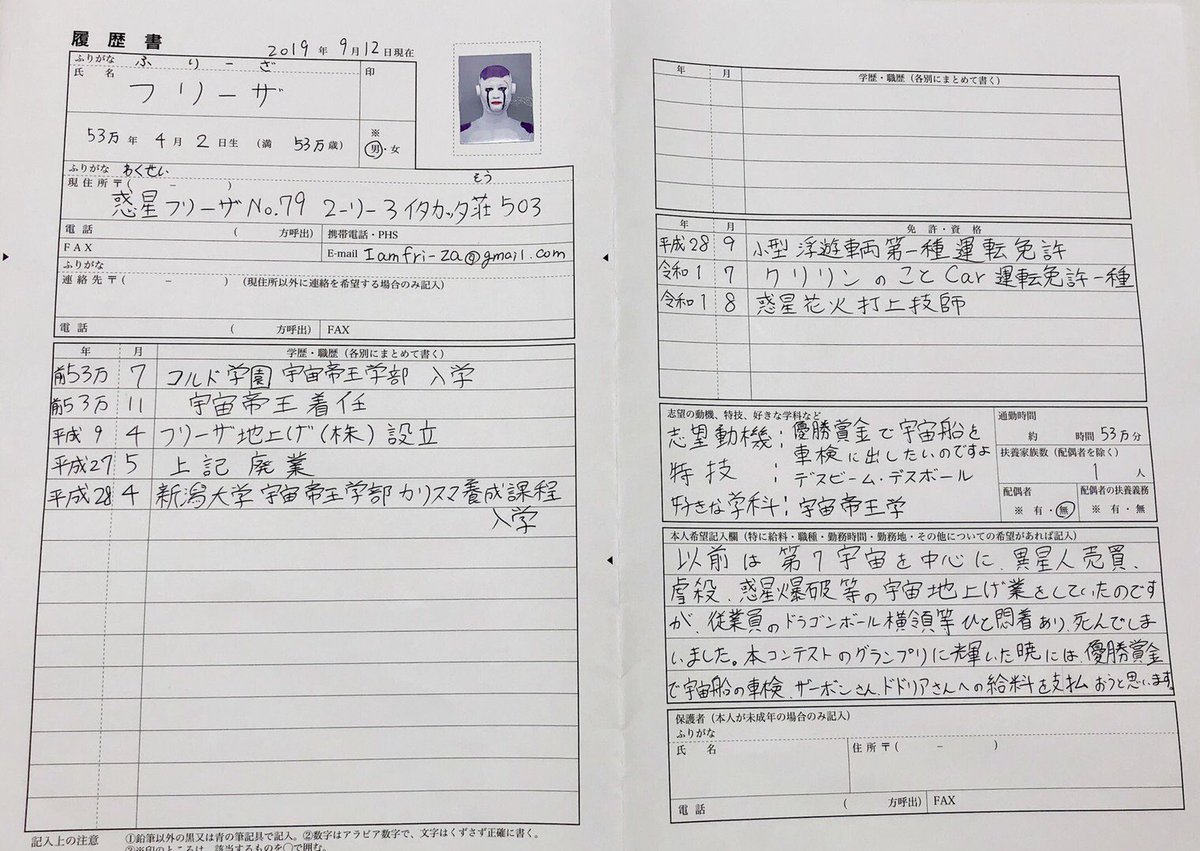 履歴書
2019年 9月12日現在
ふりがな ふりーざ
氏名 フリーザ
印
53万年 4月 2日生 (満 53万歳)
※
男・女
ふりがな わくせい もう
現住所 〒( − )
惑星フリーザNo.79 2-リー3 イタカッタ荘503
電話 ( 方呼出)
携帯電話・PHS
FAX
E-mail Iamfri-za@gmail.com
ふりがな
連絡先 〒( − ) (現住所以外に連絡を希望する場合のみ記入)
電話 ( 方呼出) FAX
年 月 学歴・職歴(各別にまとめて書く)
前53万 7 コルド学園 宇宙帝王学部 入学
前53万 11 宇宙帝王着任
平成9 4 フリーザ地上げ(株)設立
平成27 5 上記廃業
平成28 4 新潟大学宇宙帝王学部カリスマ養成課程
入学
記入上の注意 ①鉛筆以外の黒又は青の筆記具で記入。②数字はアラビア数字で、文字はくずさず正確に書く。
③※印のところは、該当するものを〇で囲む。
年 月 学歴・職歴(各別にまとめて書く)
年 月 免許・資格
平成28 9 小型浮遊車両第一種運転免許
令和1 7 クリリンのことCar運転免許一種
令和1 8 惑星花火打上技師
志望の動機、特技、好きな学科など
志望動機;優勝賞金で宇宙船を
車検に出したいのですよ
特技;デスビーム・デスボール
好きな学科;宇宙帝王学
通勤時間
約 時間 53万分
扶養家族数(配偶者を除く)
1 人
配偶者
※ 有・無
配偶者の扶養義務
※ 有・無
本人希望記入欄(特に給料・職種・勤務時間・勤務地・その他についての希望があれば記入)
以前は第7宇宙を中心に、異星人売買、
虐殺、惑星爆破等の宇宙地上げ業をしていたのです
が、従業員のドラゴンボール横領等ひと悶着あり、死んでしま
いました。本コンテストのグランプリに輝いた暁には、優勝賞金
で宇宙船の車検、ザーボンさん、ドドリアさんへの給料を支払おうと思います
保護者(本人が未成年の場合のみ記入)
ふりがな
氏名
住所 〒( − )
電話 ( 方呼出) FAX